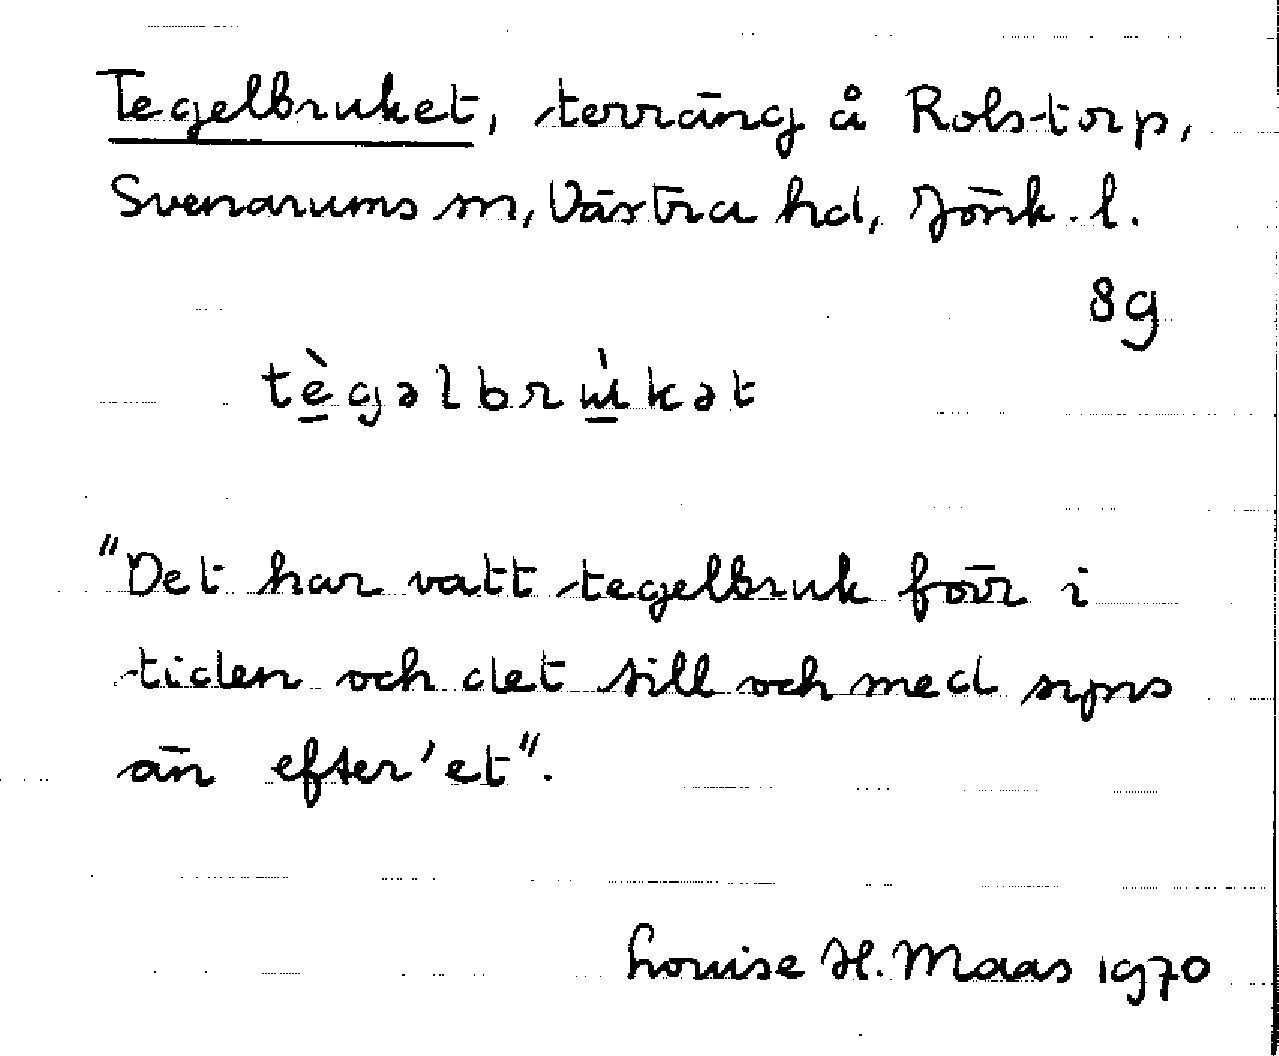 Tegelbruket, terräng å Rolstorp,
Svenarums sn, Västra hd, Jönk. l.
8g
tègəlbrúkət
"Det har vatt tegelbruk förr i
tiden och det till och med syns
än efter 'et".
Louise H. Maas 1970